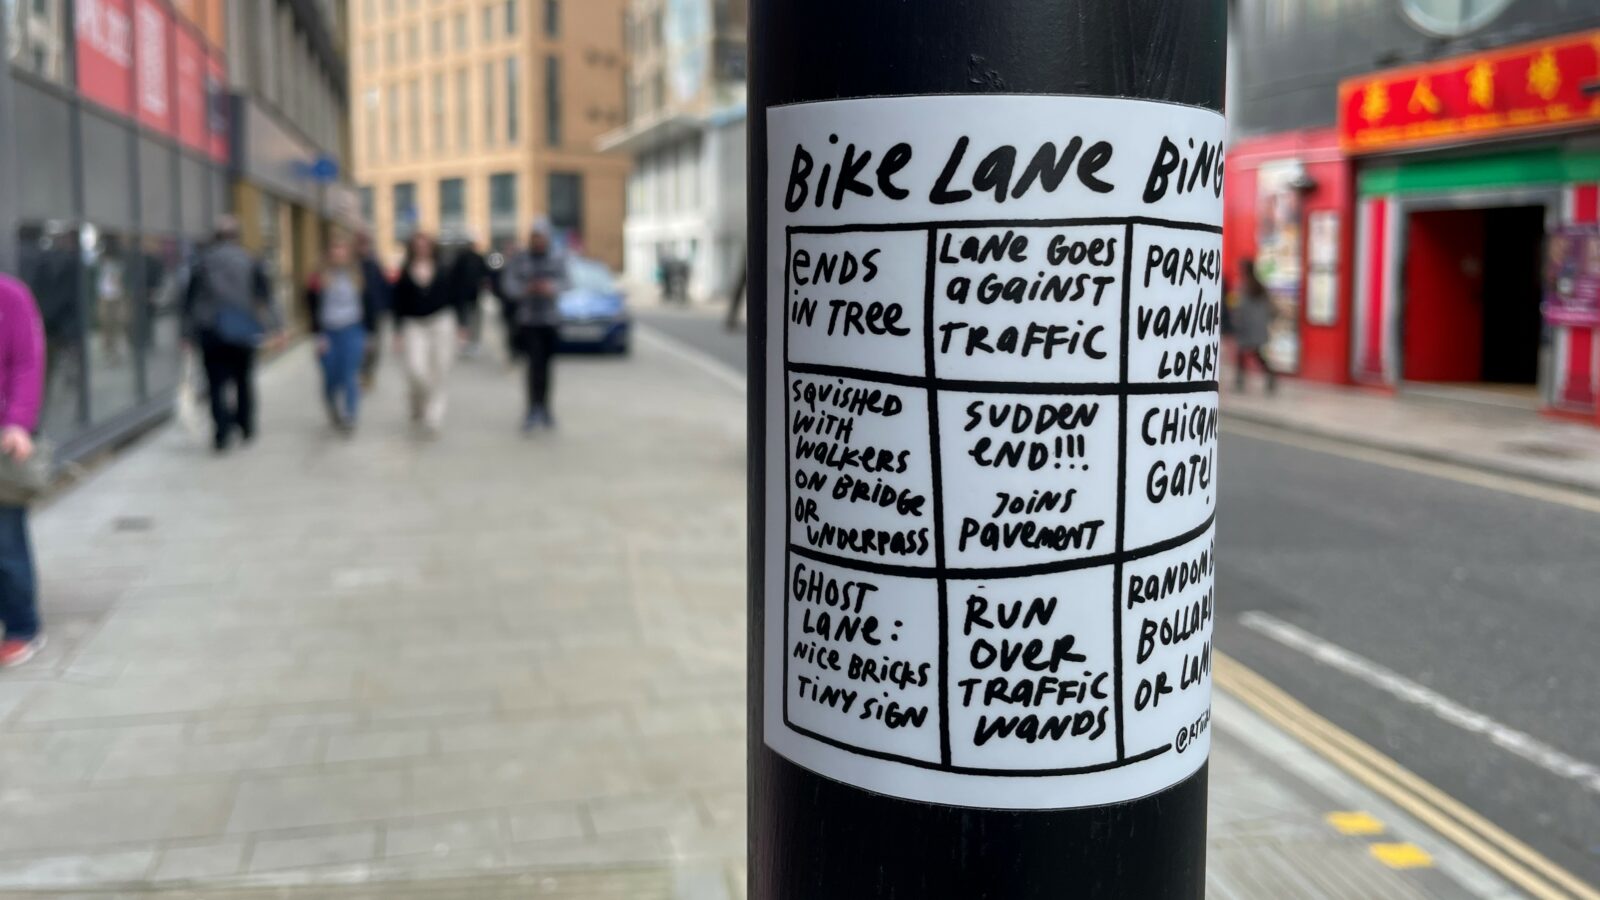 BIKE LANE BING
ENDS
IN TREE
LANE GOES
AGAINST
TRAFFIC
PARKED
VAN/CAR
LORRY
SQUISHED
WITH
WALKERS
ON BRIDGE
OR
UNDERPASS
SUDDEN
END!!!
JOINS
PAVEMENT
CHICANE
GATE!
GHOST
LANE:
NICE BRICKS
TINY SIGN
RUN
OVER
TRAFFIC
WANDS
RANDOM
BOLLARD
OR LAM